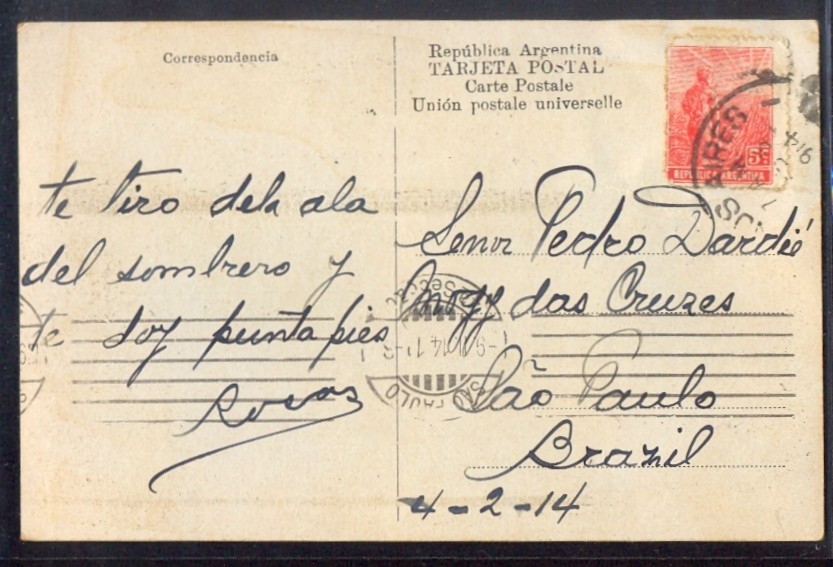 Correspondencia
República Argentina
TARJETA POSTAL
Carte Postale
Unión postale universelle
5c
REPUBLICA ARGENTINA
AIRES
te tiro del ala
del sombrero y
te doy puntapies
Rosas
Senor Pedro Dardié
Mogy das Cruzes
São Paulo
Brazil
4-2-14
PAULO